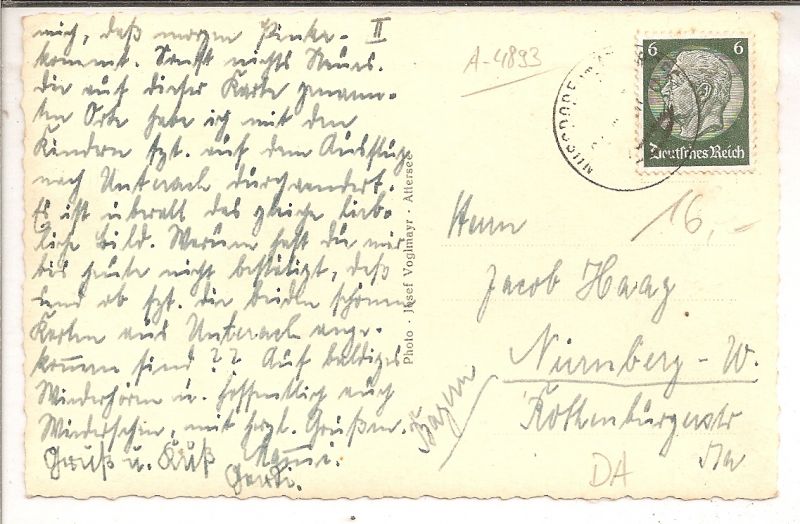 mich, daß morgen Pinke- II
kommt. Sonst nichts Neues.
Die auf dieser Karte genann-
ten Orte habe ich mit den
Kindern szt. auf dem Ausfluge
nach Unterach durchwandert.
Es ist überall das gleiche lieb-
liche Bild. Warum hast du mir
bis heute nicht bestätigt, daß
und ob szt. die beiden schönen
Karten aus Unterach ange-
kommen sind ?? Auf baldiges
Wiederhören u. hoffentlich auch
Wiedersehen, mit herzl. Grüßen.
Gruß u. Kuß
Photo · Josef Voglmayr · Attersee
A-4893
6 6
Deutsches Reich
NUSSDORF
16,-
Herrn
Jacob Haag
Nürnberg - W.
Rothenburgerstr
Bayern
DA